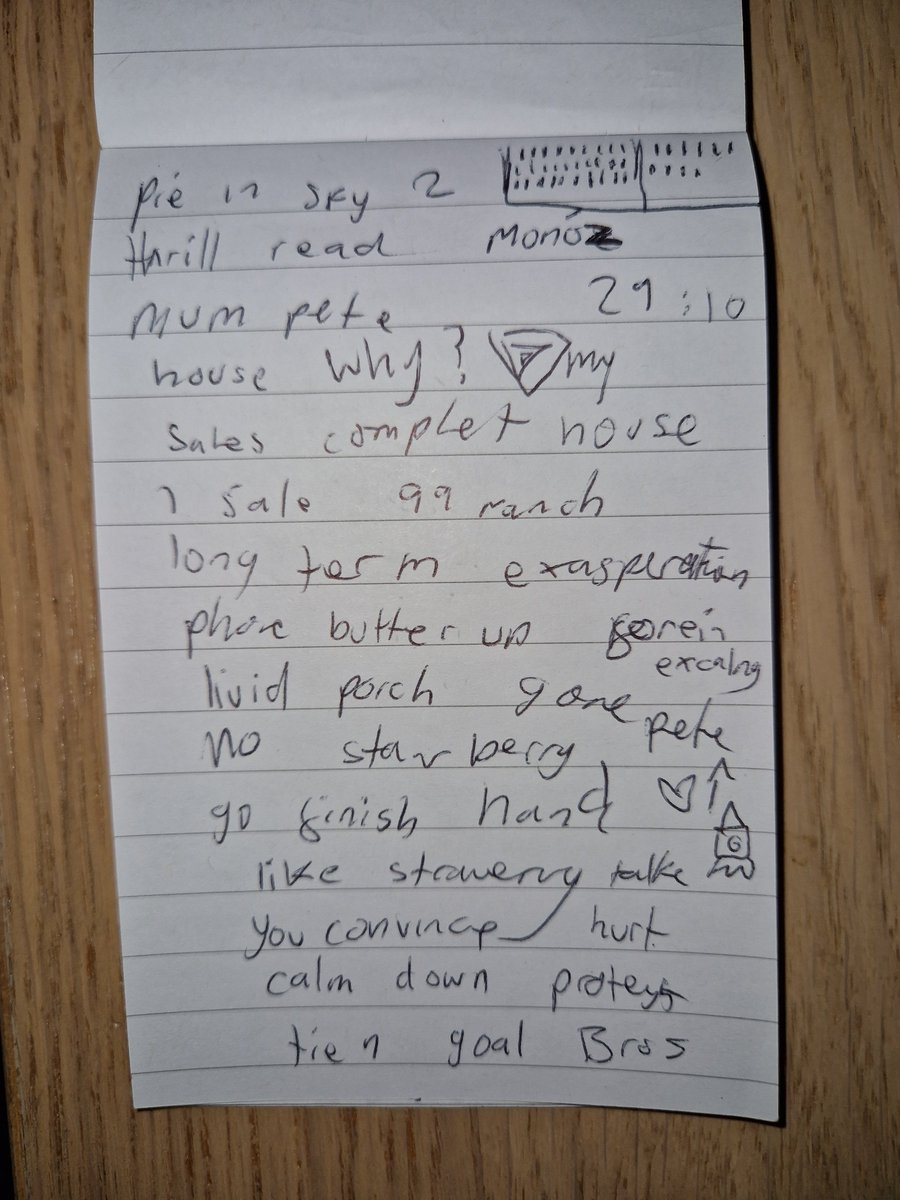 pie in sky 2
thrill read mono
mum pete 29:10
house why? my
sales complet house
1 sale 99 ranch
long term exasperation
phone butter up
excalng
livid porch gone
no starberry pete
go finish hand
G
like strawerry talke
you convince hurt
calm down
tien goal Bros